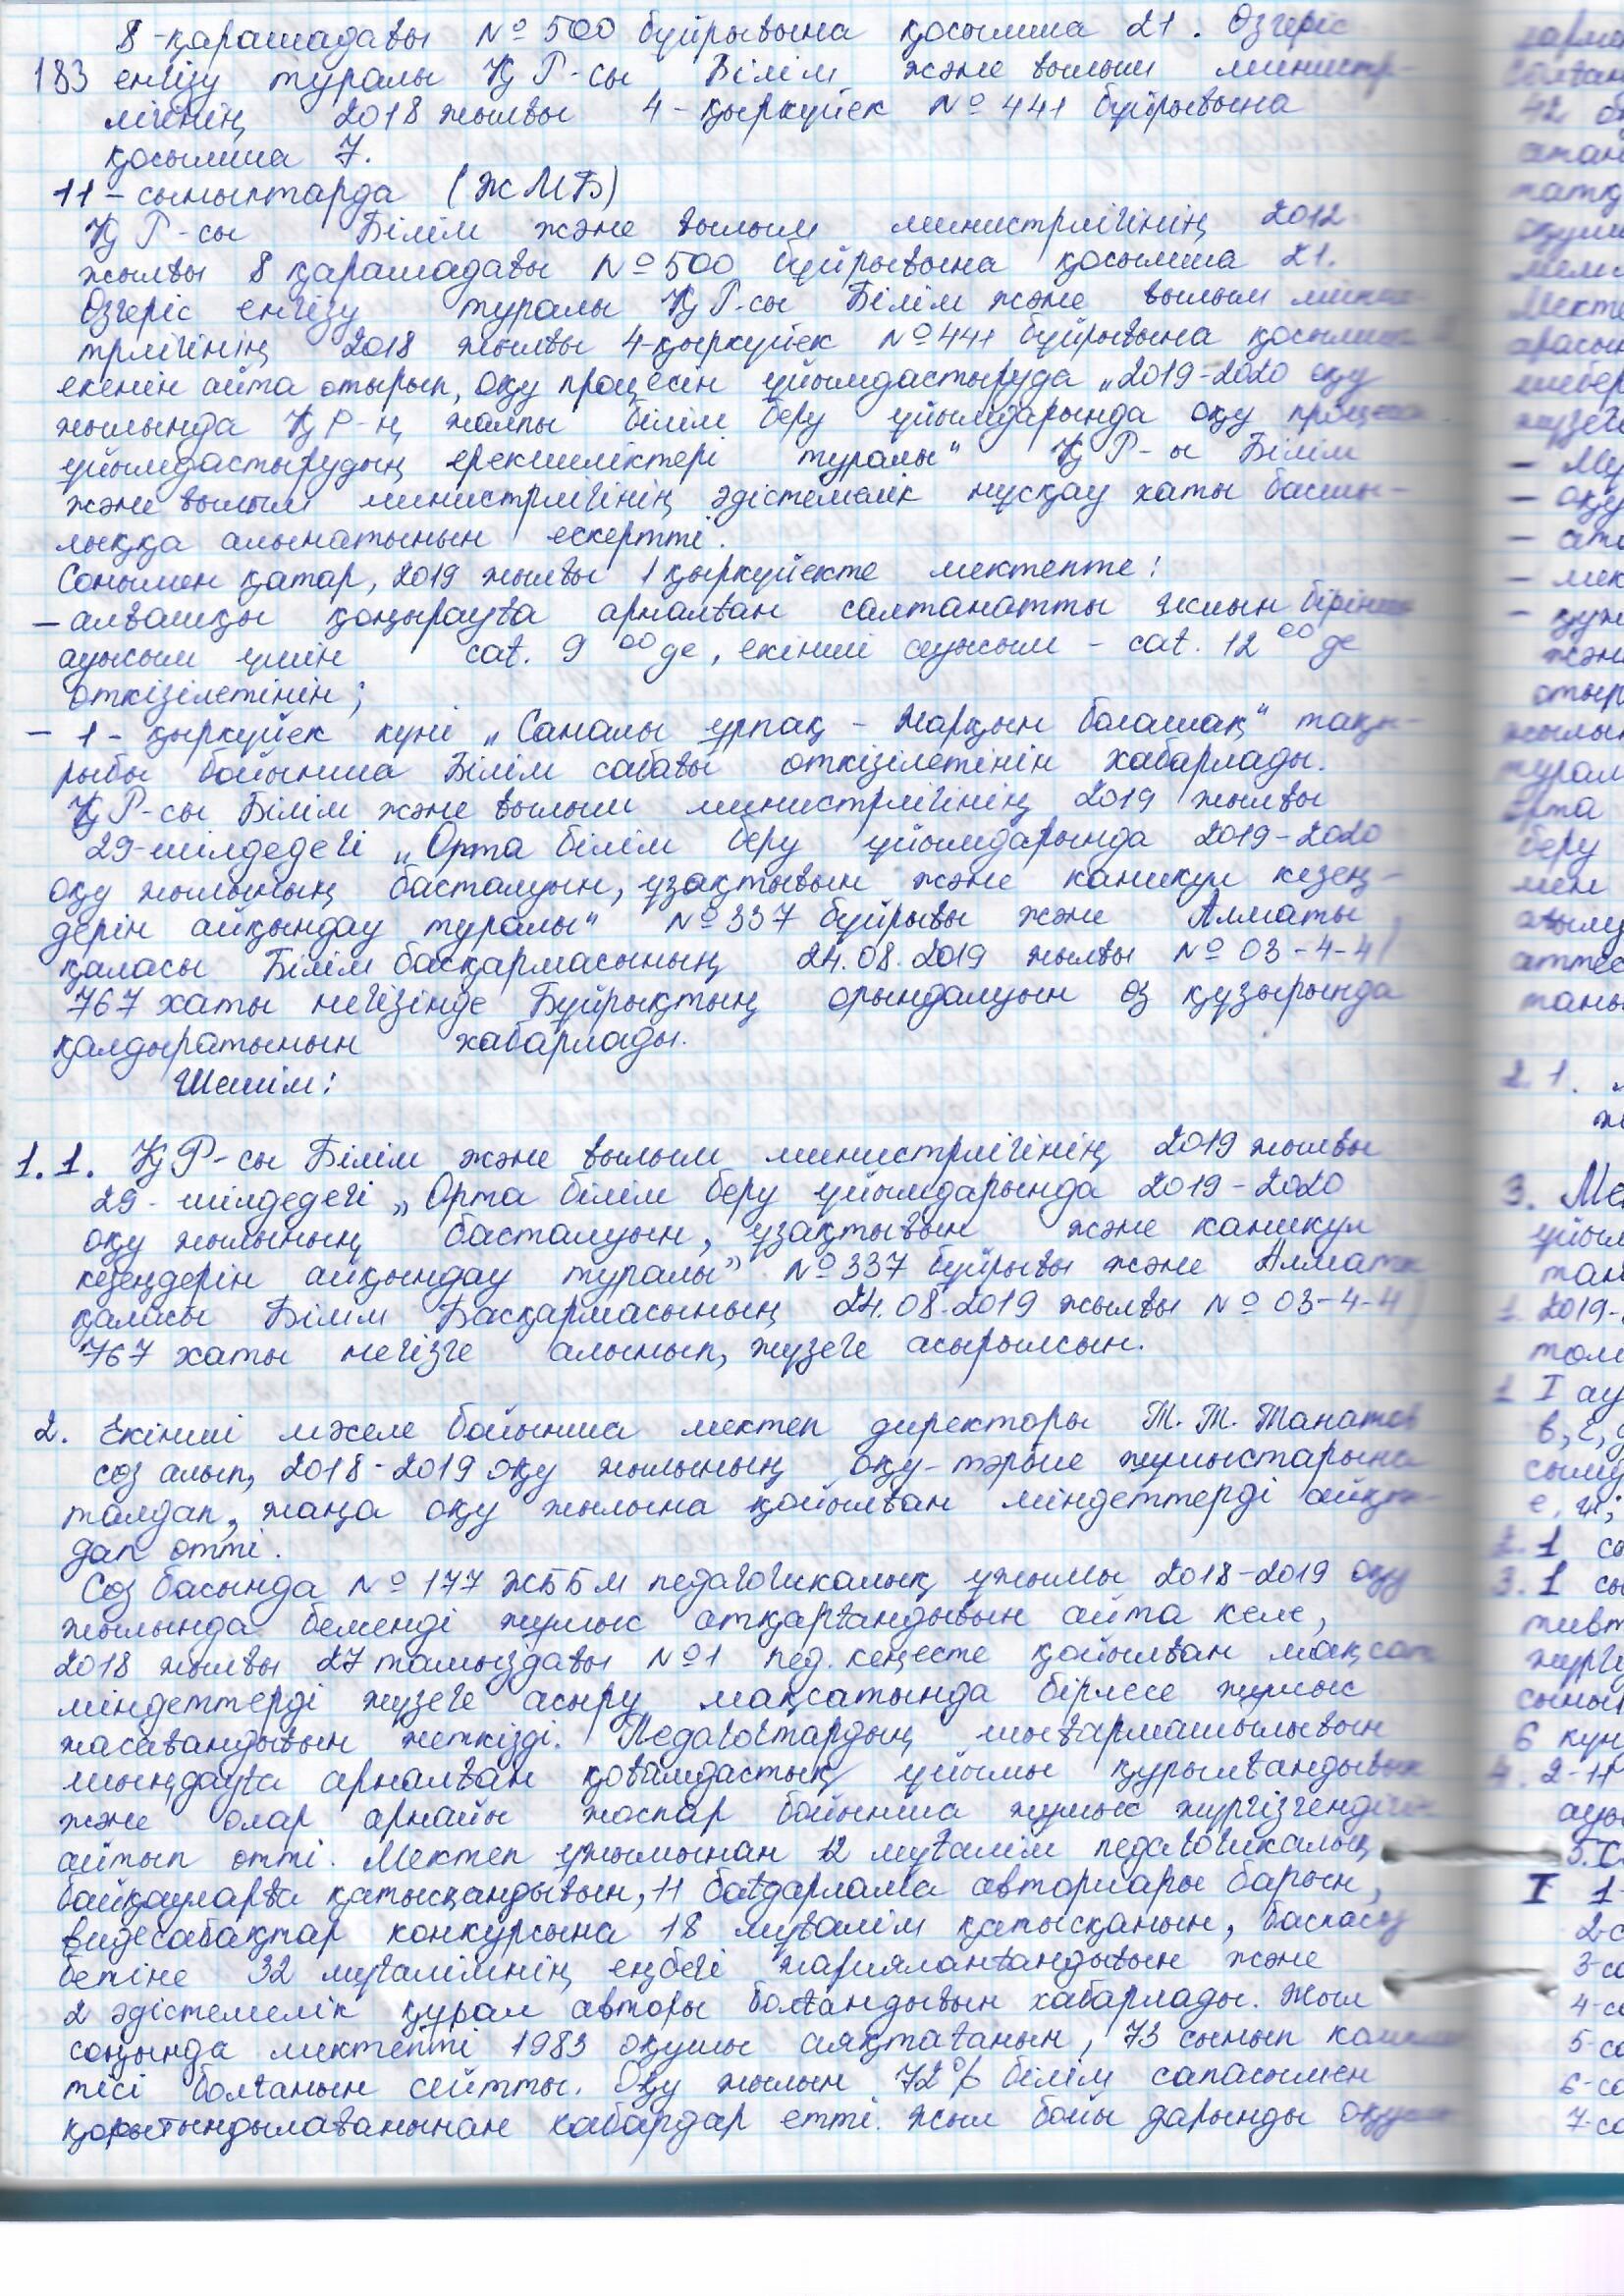 8-қарашадағы № 500 бұйрығына қосымша 21. Өзгеріс
183 енгізу туралы ҚР-сы Білім және ғылым министр-
лігінің 2018 жылғы 4-қыркүйек № 441 бұйрығына
қосымша 7.
11-сыныптарда (ЖМБ)
ҚР-сы Білім және ғылым министрлігінің 2012
жылғы 8 қарашадағы № 500 бұйрығына қосымша 21.
Өзгеріс енгізу туралы ҚР-сы Білім және ғылым минис-
трлігінің 2018 жылғы 4-қыркүйек № 441 бұйрығына қосымша
екенін айта отырып, оқу процесін ұйымдастыруда „2019-2020 оқу
жылында ҚР-ң жалпы білім беру ұйымдарында оқу процесін
ұйымдастырудың ерекшеліктері туралы" ҚР-ы Білім
және ғылым министрлігінің әдістемелік нұсқау хаты басшы-
лыққа алынатынын ескертті.
Сонымен қатар, 2019 жылғы 1 қыркүйекте мектепте:
— алғашқы қоңырауға арналған салтанатты жиын бірінші
ауысым үшін сағ. 9 00 де, екінші ауысым - сағ. 12 00 де
өткізілетінін;
— 1-қыркүйек күні „Саналы ұрпақ - Жарқын болашақ" тақы-
рыбы бойынша Білім сабағы өткізілетінін хабарлады.
ҚР-сы Білім және ғылым министрлігінің 2019 жылғы
29-шілдедегі „Орта білім беру ұйымдарында 2019-2020
оқу жылының басталуын, ұзақтығын және каникул кезең-
дерін айқындау туралы" № 337 бұйрығы және Алматы
қаласы Білім басқармасының 24.08.2019 жылғы № 03-4-4/
767 хаты негізінде Бұйрықтың орындалуын өз құзырында
қалдыратынын хабарлады.
Шешім:
1.1. ҚР-сы Білім және ғылым министрлігінің 2019 жылғы
29-шілдедегі „Орта білім беру ұйымдарында 2019-2020
оқу жылының басталуын, ұзақтығын және каникул
кезеңдерін айқындау туралы" № 337 бұйрығы және Алматы
қаласы Білім Басқармасының 24.08.2019 жылғы № 03-4-4/
767 хаты негізге алынып, жүзеге асырылсын.
2. Екінші мәселе бойынша мектеп директоры Т. Т. Танатов
сөз алып, 2018-2019 оқу жылының оқу-тәрбие жұмыстарына
талдап, жаңа оқу жылына қойылған міндеттерді айқын-
дап өтті.
Сөз басында № 177 ЖББМ педагогикалық ұжымы 2018-2019 оқу
жылында белсенді жұмыс атқарғандығын айта келе,
2018 жылғы 27 тамыздағы №1 пед. кеңесте қойылған мақсат
міндеттерді жүзеге асыру мақсатында бірлесе жұмыс
жасағандығын жеткізді. Педагогтардың шығармашылығын
шыңдауға арналған қоғамдастық ұйымы құрылғандығын
және олар арнайы жоспар бойынша жұмыс жүргізгендігін
айтып өтті. Мектеп ұжымынан 12 мұғалім педагогикалық
байқауларға қатысқандығын, 11 бағдарлама авторлары барын,
видеосабақтар конкурсына 18 мұғалім қатысқанын, баспасөз
бетіне 32 мұғалімнің еңбегі жарияланғандығын және
2 әдістемелік құрал авторы болғандығын хабарлады. Жыл
соңында мектепті 1983 оқушы аяқтағанын, 73 сынып компле
тісі болғанын сөйтты. Оқу жылын 72% білім сапасымен
қорытындылағанынан хабардар етті. Жыл бойы дарынды оқушы